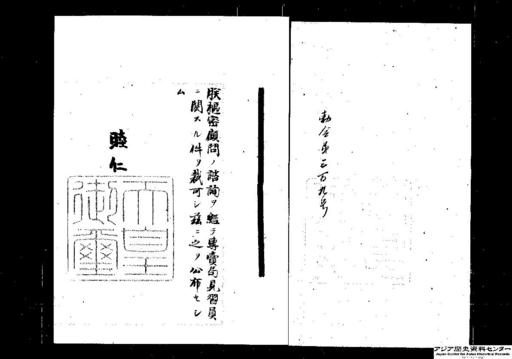 勅令第三百九号
朕枢密顧問ノ諮詢ヲ経テ専売局見習員
ニ関スル件ヲ裁可シ茲ニ之ヲ公布セシ
ム
睦仁
天皇御璽
アジア歴史資料センター
Japan Center for Asian Historical Records